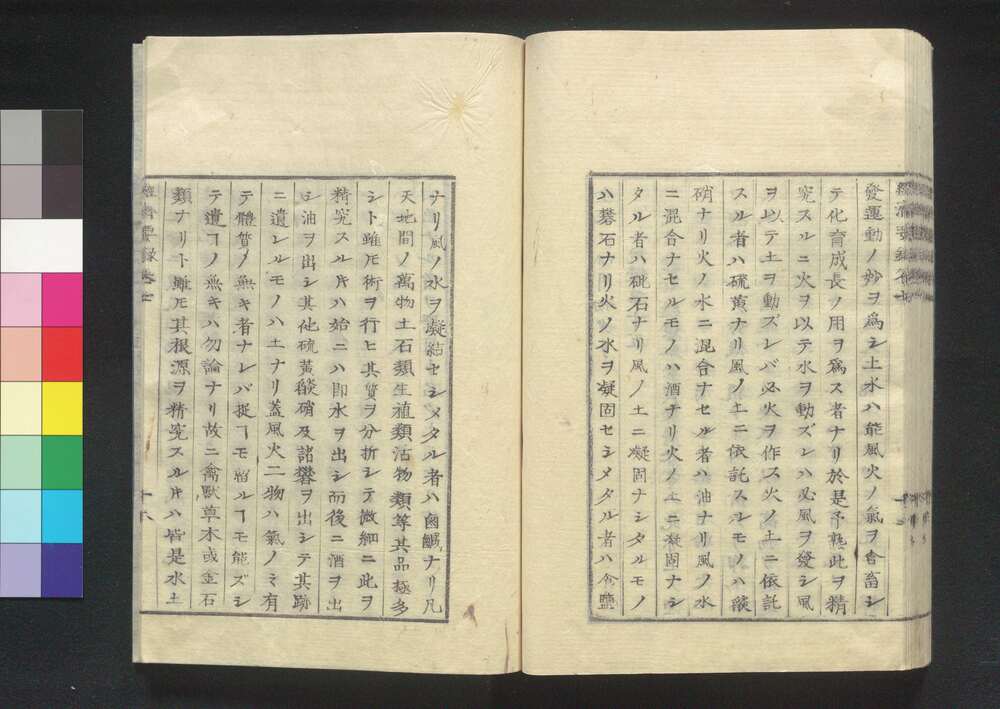 發運動ノ妙ヲ爲シ土水ハ能風火ノ氣ヲ含畜シ
テ化育成長ノ用ヲ爲ス者ナリ於是予熟此ヲ精
究スルニ火ヲ以テ水ヲ動ズレハ必風ヲ發シ風
ヲ以テ土ヲ動ズレバ必火ヲ作ス火ノ土ニ依託
スル者ハ硫黄ナリ風ノ土ニ依託スルモノハ燄
硝ナリ火ノ水ニ混合ナセル者ハ油ナリ風ノ水
ニ混合ナセルモノハ酒ナリ火ノ土ニ凝固ナシ
タル者ハ硇石ナリ風ノ土ニ凝固ナシタルモノ
ハ礬石ナリ火ノ水ヲ凝固セシメタル者ハ食鹽
ナリ風ノ水ヲ凝結セシメタル者ハ鹵鹹ナリ凡
天地間ノ萬物土石類生殖類活物類等其品極多
シト雖モ術ヲ行ヒ其質ヲ分折シテ微細ニ此ヲ
精究スルキハ始ニハ即水ヲ出シ而後ニ酒ヲ出
シ油ヲ出シ其他硫黄燄硝及諸礬ヲ出シテ其跡
ニ遺レルモノハ土ナリ蓋風火二物ハ氣ノミ有
テ體質ノ無キ者ナレバ捉ヿモ留ルヿモ能ズシ
テ遺ヿノ無キハ勿論ナリ故ニ禽獸草木或金石
類ナリト雖モ其根源ヲ精究スルキハ皆是水土